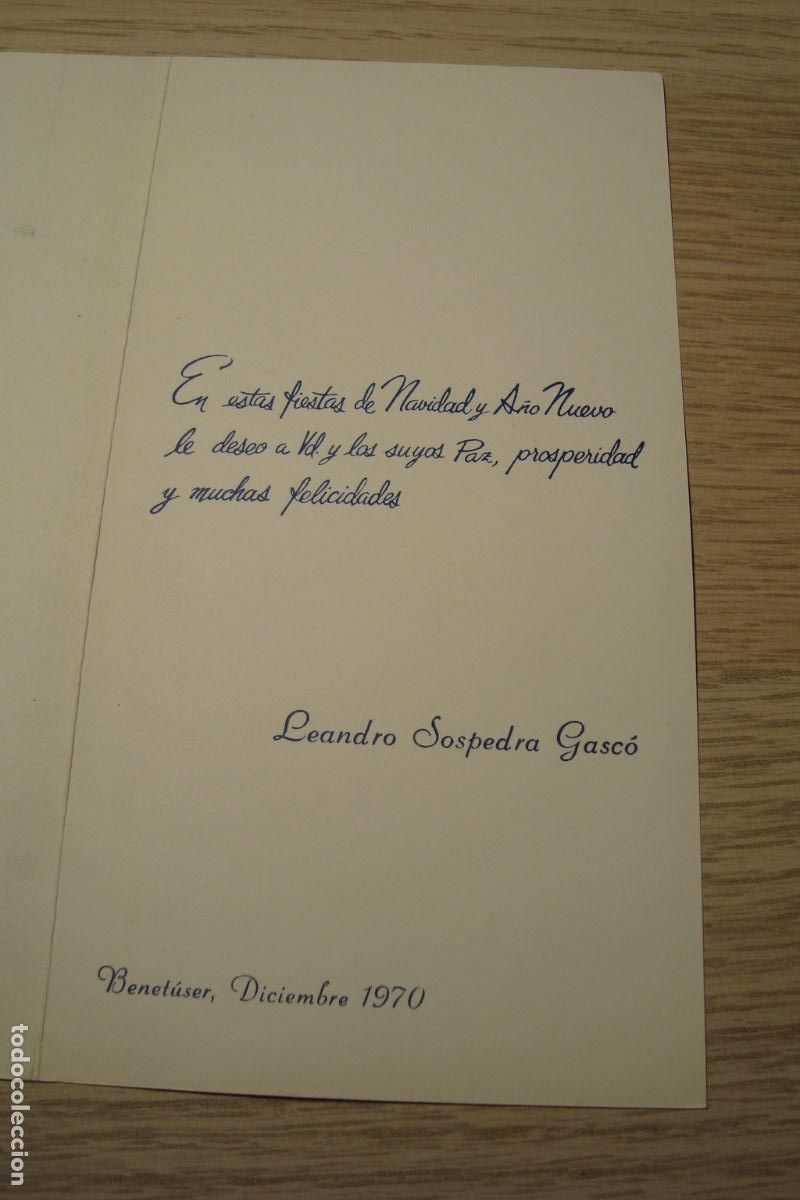 En estas fiestas de Navidad y Año Nuevo
le deseo a Vd. y los suyos Paz, prosperidad
y muchas felicidades
Leandro Sospedra Gascó
Benetúser, Diciembre 1970
todocoleccion